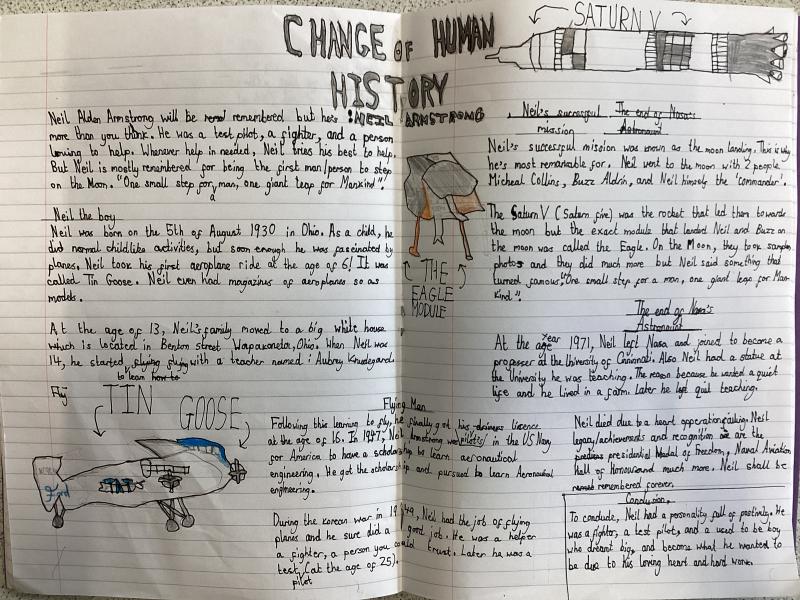 CHANGE OF HUMAN
HISTORY
: NEIL ARMSTRONG
Neil Alden Armstrong will be remembered but he's
more than you think. He was a test pilot, a fighter, and a person
loving to help. Whenever help in needed, Neil tries his best to help.
But Neil is mostly remembered for being the first man/person to step
on the Moon. "One small step for a man, one giant leap for Mankind".
Neil the boy
Neil was born on the 5th of August 1930 in Ohio. As a child, he
did normal childlike activities, but soon enough he was fascinated by
planes. Neil took his first aeroplane ride at the age of 6! It was
called Tin Goose. Neil even had magazines of aeroplanes so as
models.
At the age of 13, Neil's family moved to a big white house
which is located in Benton Street Wapakoneta, Ohio. When Neil was
14, he started to learn flying with a teacher named : Aubrey Knudegard.
Fly
TIN GOOSE
Ford
Flying Man
Following this learning to fly, he finally got his licence
at the age of 16. In 1947, Neil Armstrong was pilots in the US Navy
for America to have a scholarship to learn aeronautical
engineering. He got the scholarship and pursued to learn Aeronautical
engineering.
During the korean war in 1949, Neil had the job of flying
planes and he sure did a good job. He was a helper
a fighter, a person you could trust. Later he was a
test pilot (at the age of 25).
SATURN V
THE
EAGLE
MODULE
Neil's successful
mission
The end of Nasa's
Astronaut
Neil's successful mission was known as the moon landing. This is why
he's most remarkable for. Neil went to the moon with 2 people
Micheal Collins, Buzz Aldrin, and Neil himself the 'commander'.
The Saturn V (Saturn five) was the rocket that led them towards
the moon but the exact module that landed Neil and Buzz on
the moon was called the Eagle. On the Moon, they took samples
photos and they did much more but Neil said something that
turned famous,"One small step for a man, one giant leap for Man-
kind".
The end of Nasa's
Astronaut
At the year 1971, Neil left Nasa and joined to become a
professer at the University of Cincinnati. Also Neil had a statue at
the University he was teaching. The reason because he wanted a quiet
life and he lived in a farm. Later he quit teaching.
Neil died due to a heart opperation failing. Neil
legacy/achievements and recognition are the
presidential Medal of Freedom, Naval Aviation
Hall of Honour and much more. Neil shall be
remembered forever.
Conclusion
To conclude, Neil had a personality full of positivly. He
was a fighter, a test pilot, and a used to be boy
who dreamt big, and became what he wanted to
be due to his loving heart and hard work.